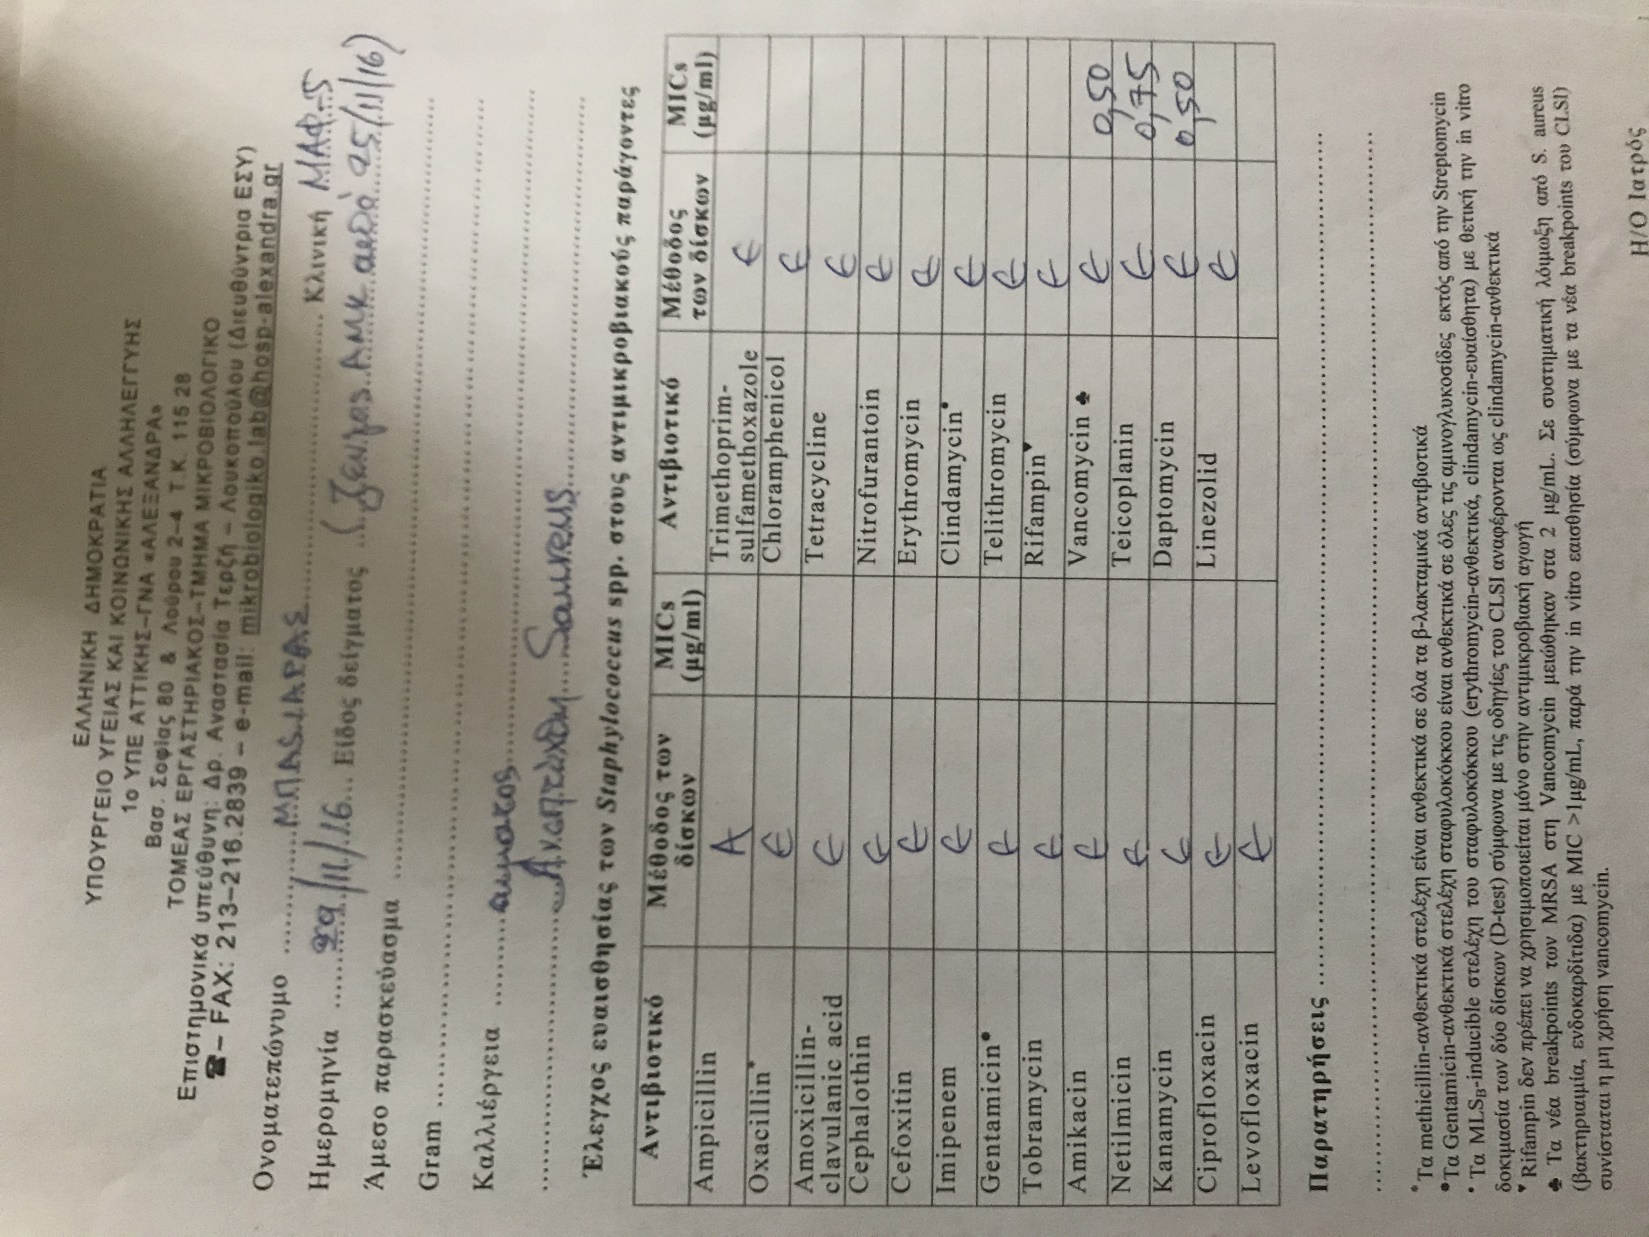 ΕΛΛΗΝΙΚΗ ΔΗΜΟΚΡΑΤΙΑ
ΥΠΟΥΡΓΕΙΟ ΥΓΕΙΑΣ ΚΑΙ ΚΟΙΝΩΝΙΚΗΣ ΑΛΛΗΛΕΓΓΥΗΣ
1ο ΥΠΕ ΑΤΤΙΚΗΣ–ΓΝΑ «ΑΛΕΞΑΝΔΡΑ»
Βασ. Σοφίας 80 & Λούρου 2–4 Τ.Κ. 115 28
ΤΟΜΕΑΣ ΕΡΓΑΣΤΗΡΙΑΚΟΣ–ΤΜΗΜΑ ΜΙΚΡΟΒΙΟΛΟΓΙΚΟ
Επιστημονικά υπεύθυνη: Δρ. Αναστασία Τερζή – Λουκοπούλου (Διευθύντρια ΕΣΥ)
☎– FAX: 213–216.2839 – e-mail: mikrobiologiko.lab@hosp-alexandra.gr
Ονοματεπώνυμο ΜΠΑΣΙΑΡΑΣ Κλινική ΜΑΦ-5
Ημερομηνία 29/11/16 Είδος δείγματος ΑΜΚ από 25/11/16)
Άμεσο παρασκεύασμα
Gram
Καλλιέργεια αίματος
Αναπτύχθη S.aureus
Έλεγχος ευαισθησίας των Staphylococcus spp. στους αντιμικροβιακούς παράγοντες
Αντιβιοτικό Μέθοδος των δίσκων MICs (μg/ml) Αντιβιοτικό Μέθοδος των δίσκων MICs (μg/ml)
Ampicillin Α Trimethoprim-sulfamethoxazole Ε
Oxacillin* Ε Chloramphenicol Ε
Amoxicillin-clavulanic acid Ε Tetracycline Ε
Cephalothin Ε Nitrofurantoin Ε
Cefoxitin Ε Erythromycin Ε
Imipenem Ε Clindamycin• Ε
Gentamicin● Ε Telithromycin Ε
Tobramycin Ε Rifampin▼ Ε
Amikacin Ε Vancomycin ♣ Ε 0,50
Netilmicin Ε Teicoplanin Ε 0,75
Kanamycin Ε Daptomycin Ε 0,50
Ciprofloxacin Ε Linezolid Ε
Levofloxacin Ε
Παρατηρήσεις
* Τα methicillin-ανθεκτικά στελέχη είναι ανθεκτικά σε όλα τα β-λακταμικά αντιβιοτικά
● Τα Gentamicin-ανθεκτικά στελέχη σταφυλοκόκκου είναι ανθεκτικά σε όλες τις αμινογλυκοσίδες εκτός από την Streptomycin
• Τα MLSB-inducible στελέχη του σταφυλοκόκκου (erythromycin-ανθεκτικά, clindamycin-ευαίσθητα) με θετική την in vitro
δοκιμασία των δύο δίσκων (D-test) σύμφωνα με τις οδηγίες του CLSI αναφέρονται ως clindamycin-ανθεκτικά
▼ Rifampin δεν πρέπει να χρησιμοποιείται μόνο στην αντιμικροβιακή αγωγή
♣ Τα νέα breakpoints των MRSA στη Vancomycin μειώθηκαν στα 2 μg/mL. Σε συστηματική λόιμωξη από S. aureus
(βακτηριαιμία, ενδοκαρδίτιδα) με MIC >1μg/mL, παρά την in vitro εαισθησία (σύμφωνα με τα νέα breakpoints του CLSI)
συνίσταται η μη χρήση vancomycin.
Η/Ο Ιατρός